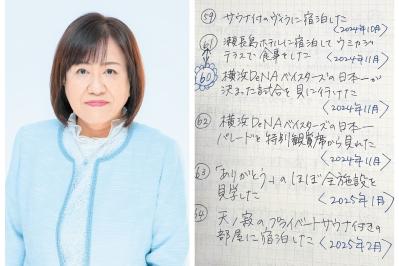 59 サウナ付のヴィラに宿泊した
<2024年10月>
61 瀬長島ホテルに宿泊して ウミカジ
テラスで食事をした
<2024年11月>
60 横浜DeNAベイスターズの日本一が
決まった試合を見に行けた
<2024年11月>
62 横浜DeNAベイスターズの日本一
パレードを特別観覧席から見れた
<2024年11月>
63 「ありがとう」のほぼ全施設を
見学した
<2025年1月>
64 天ノ寂のプライベートサウナ付きの
部屋に宿泊した
<2025年2月>